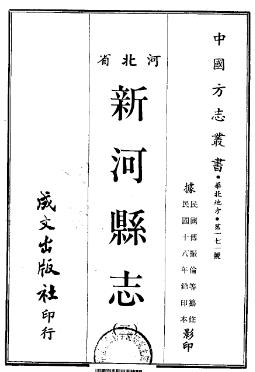 中國方志叢書・華北地方・第一七一號
據民國傅振倫等纂修
民國十八年鉛印本影印
河北省
新河縣志
成文出版社印行